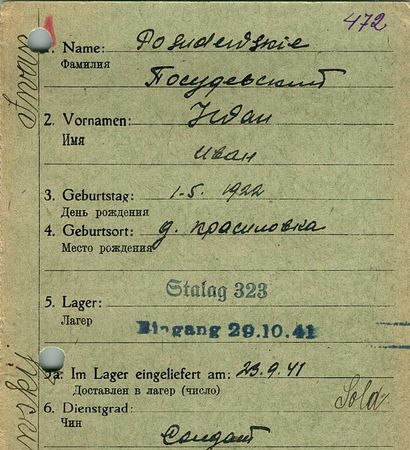 472
1. Name: Posudewskie
Фамилия
Посудевский
2. Vornamen: Iwan
Имя
Иван
3. Geburtstag: 1.5. 1922
День рождения
4. Geburtsort: д. Красиловка
Место рождения
Stalag 323
5. Lager:
Лагер
Eingang 29.10.41
5a: Im Lager eingeliefert am: 23.9.41
Доставлен в лагер (число)
6. Dienstgrad: Sold
Чин
Солдат